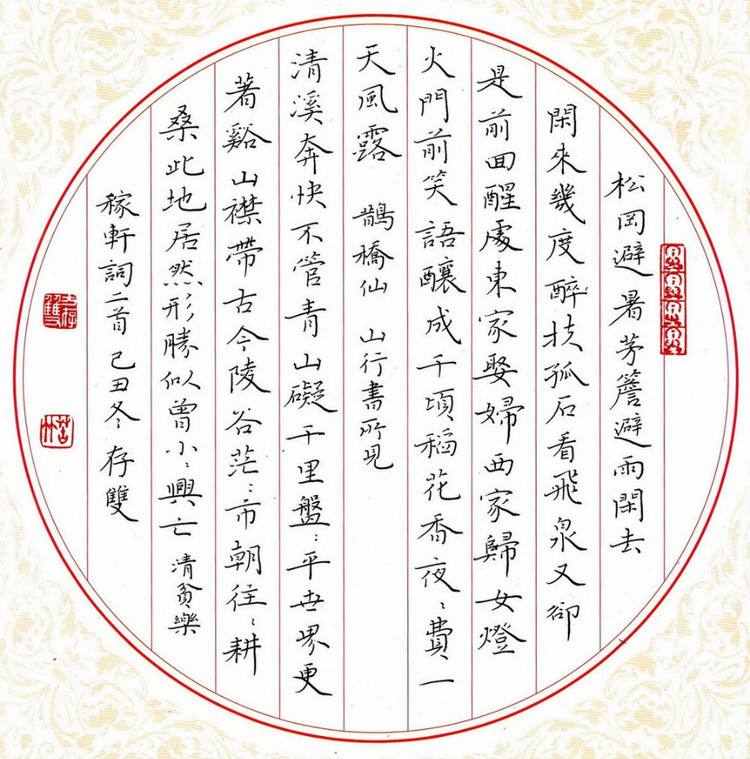 松岡避暑茅簷避雨閑去
閑來幾度醉扶孤石看飛泉又卻
是前囬醒處東家娶婦西家歸女燈
火門前笑語釀成千頃稻花香夜〻費一
天風露 鵲橋仙 山行書所見
清溪奔快不管青山礙千里盤〻平世界更
著谿山襟帶古今陵谷茫〻市朝往〻耕
桑此地居然形勝似曾小〻興亡 清貧樂
稼軒詞二首 己丑冬 存雙